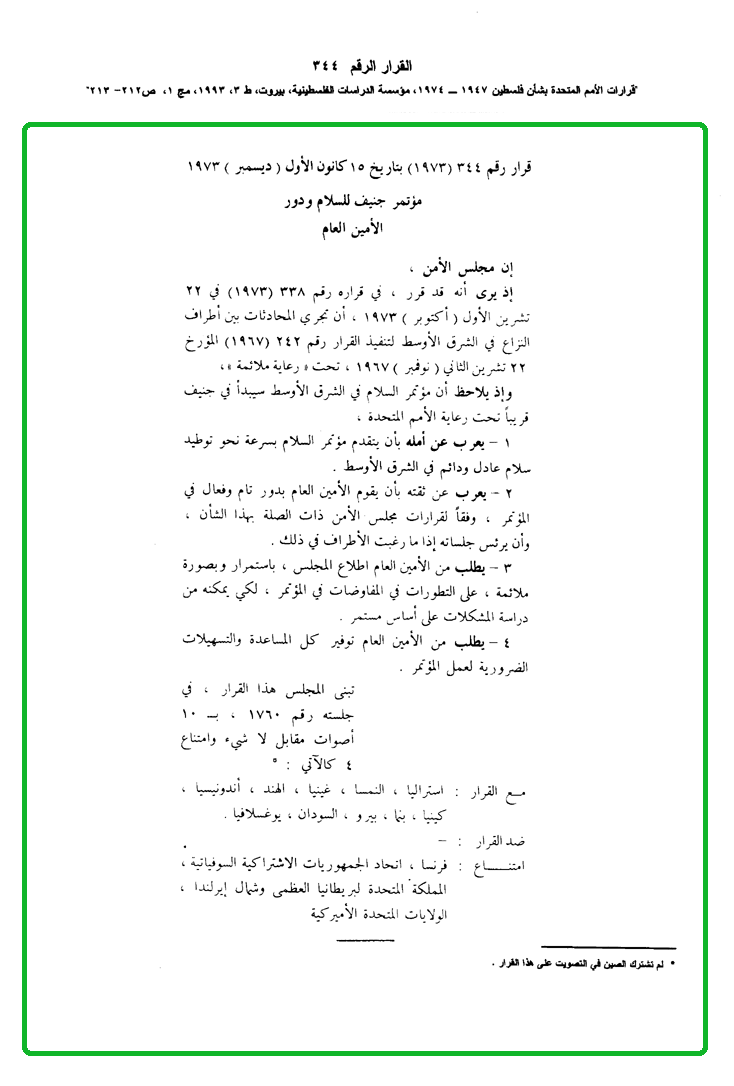 القرار الرقم ٣٤٤
"قرارات الأمم المتحدة بشأن فلسطين ١٩٤٧ ــ ١٩٧٤، مؤسسة الدراسات الفلسطينية، بيروت، ط ٣، ١٩٩٣، مج ١، ص٢١٢- ٢١٣"
قرار رقم ٣٤٤ (١٩٧٣) بتاريخ ١٥ كانون الأول ( ديسمبر ) ١٩٧٣
مؤتمر جنيف للسلام ودور
الأمين العام
إن مجلس الأمن ،
إذ يرى أنه قد قرر ، في قراره رقم ٣٣٨ (١٩٧٣) في ٢٢
تشرين الأول ( أكتوبر ) ١٩٧٣ ، أن تجري المحادثات بين أطراف
النزاع في الشرق الأوسط لتنفيذ القرار رقم ٢٤٢ (١٩٦٧) المؤرخ
٢٢ تشرين الثاني ( نوفمبر ) ١٩٦٧ ، تحت « رعاية ملائمة » ،
وإذ يلاحظ أن مؤتمر السلام في الشرق الأوسط سيبدأ في جنيف
قريباً تحت رعاية الأمم المتحدة ،
١ – يعرب عن أمله بأن يتقدم مؤتمر السلام بسرعة نحو توطيد
سلام عادل ودائم في الشرق الأوسط .
٢ – يعرب عن ثقته بأن يقوم الأمين العام بدور تام وفعال في
المؤتمر ، وفقاً لقرارات مجلس الأمن ذات الصلة بهذا الشأن ،
وأن يرئس جلساته إذا ما رغبت الأطراف في ذلك .
٣ – يطلب من الأمين العام اطلاع المجلس ، باستمرار وبصورة
ملائمة ، على التطورات في المفاوضات في المؤتمر ، لكي يمكنه من
دراسة المشكلات على أساس مستمر .
٤ – يطلب من الأمين العام توفير كل المساعدة والتسهيلات
الضرورية لعمل المؤتمر .
تبنى المجلس هذا القرار ، في
جلسته رقم ١٧٦٠ ، بــ ١٠
أصوات مقابل لا شيء وامتناع
٤ كالآتي : *
مع القرار : استراليا ، النمسا ، غينيا ، الهند ، أندونيسيا ،
كينيا ، بنما ، بيرو ، السودان ، يوغسلافيا .
ضد القرار : –
امتنـــــاع : فرنسا ، اتحاد الجمهوريات الاشتراكية السوفياتية ،
المملكة المتحدة لبريطانيا العظمى وشمال إيرلندا ،
الولايات المتحدة الأميركية
* لم تشترك الصين في التصويت على هذا القرار .